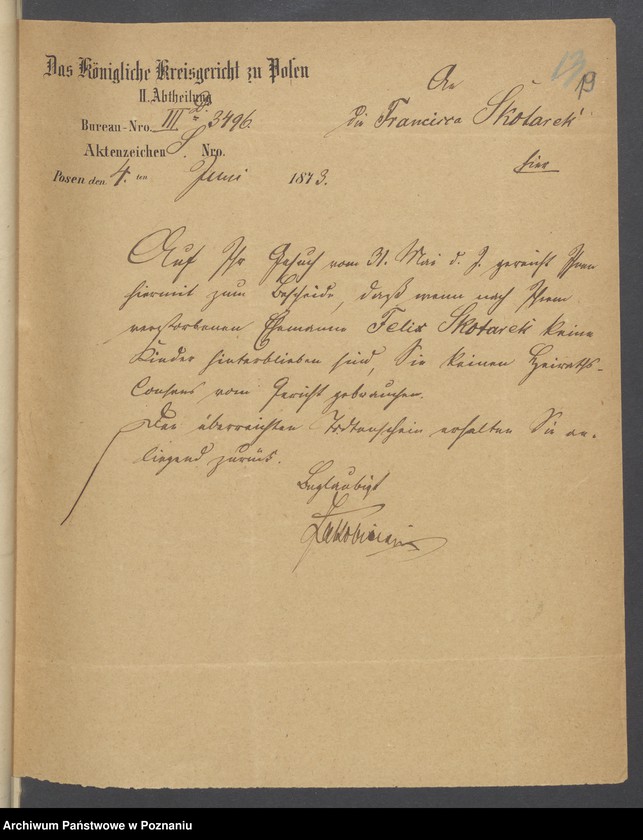 Das Königliche Kreisgericht zu Posen
II. Abtheilung
Bureau-Nro. III 3496.
Aktenzeichen S. Nro.
Posen den 4. ten Juni 1873.
13
19
An
die Francisca Skotarek
hier
Auf Ihr Gesuch vom 31. Mai d. J. gereicht Ihnen
hiermit zum Bescheide, daß wenn nach Ihrem
verstorbenen Ehemanne Felix Skotarek keine
Kinder hinterblieben sind, Sie keinen Heiraths-
Consens vom Gericht gebrauchen.
Den überreichten Todtenschein erhalten Sie an-
liegend zurück.
Beglaubigt
Archiwum Państwowe w Poznaniu